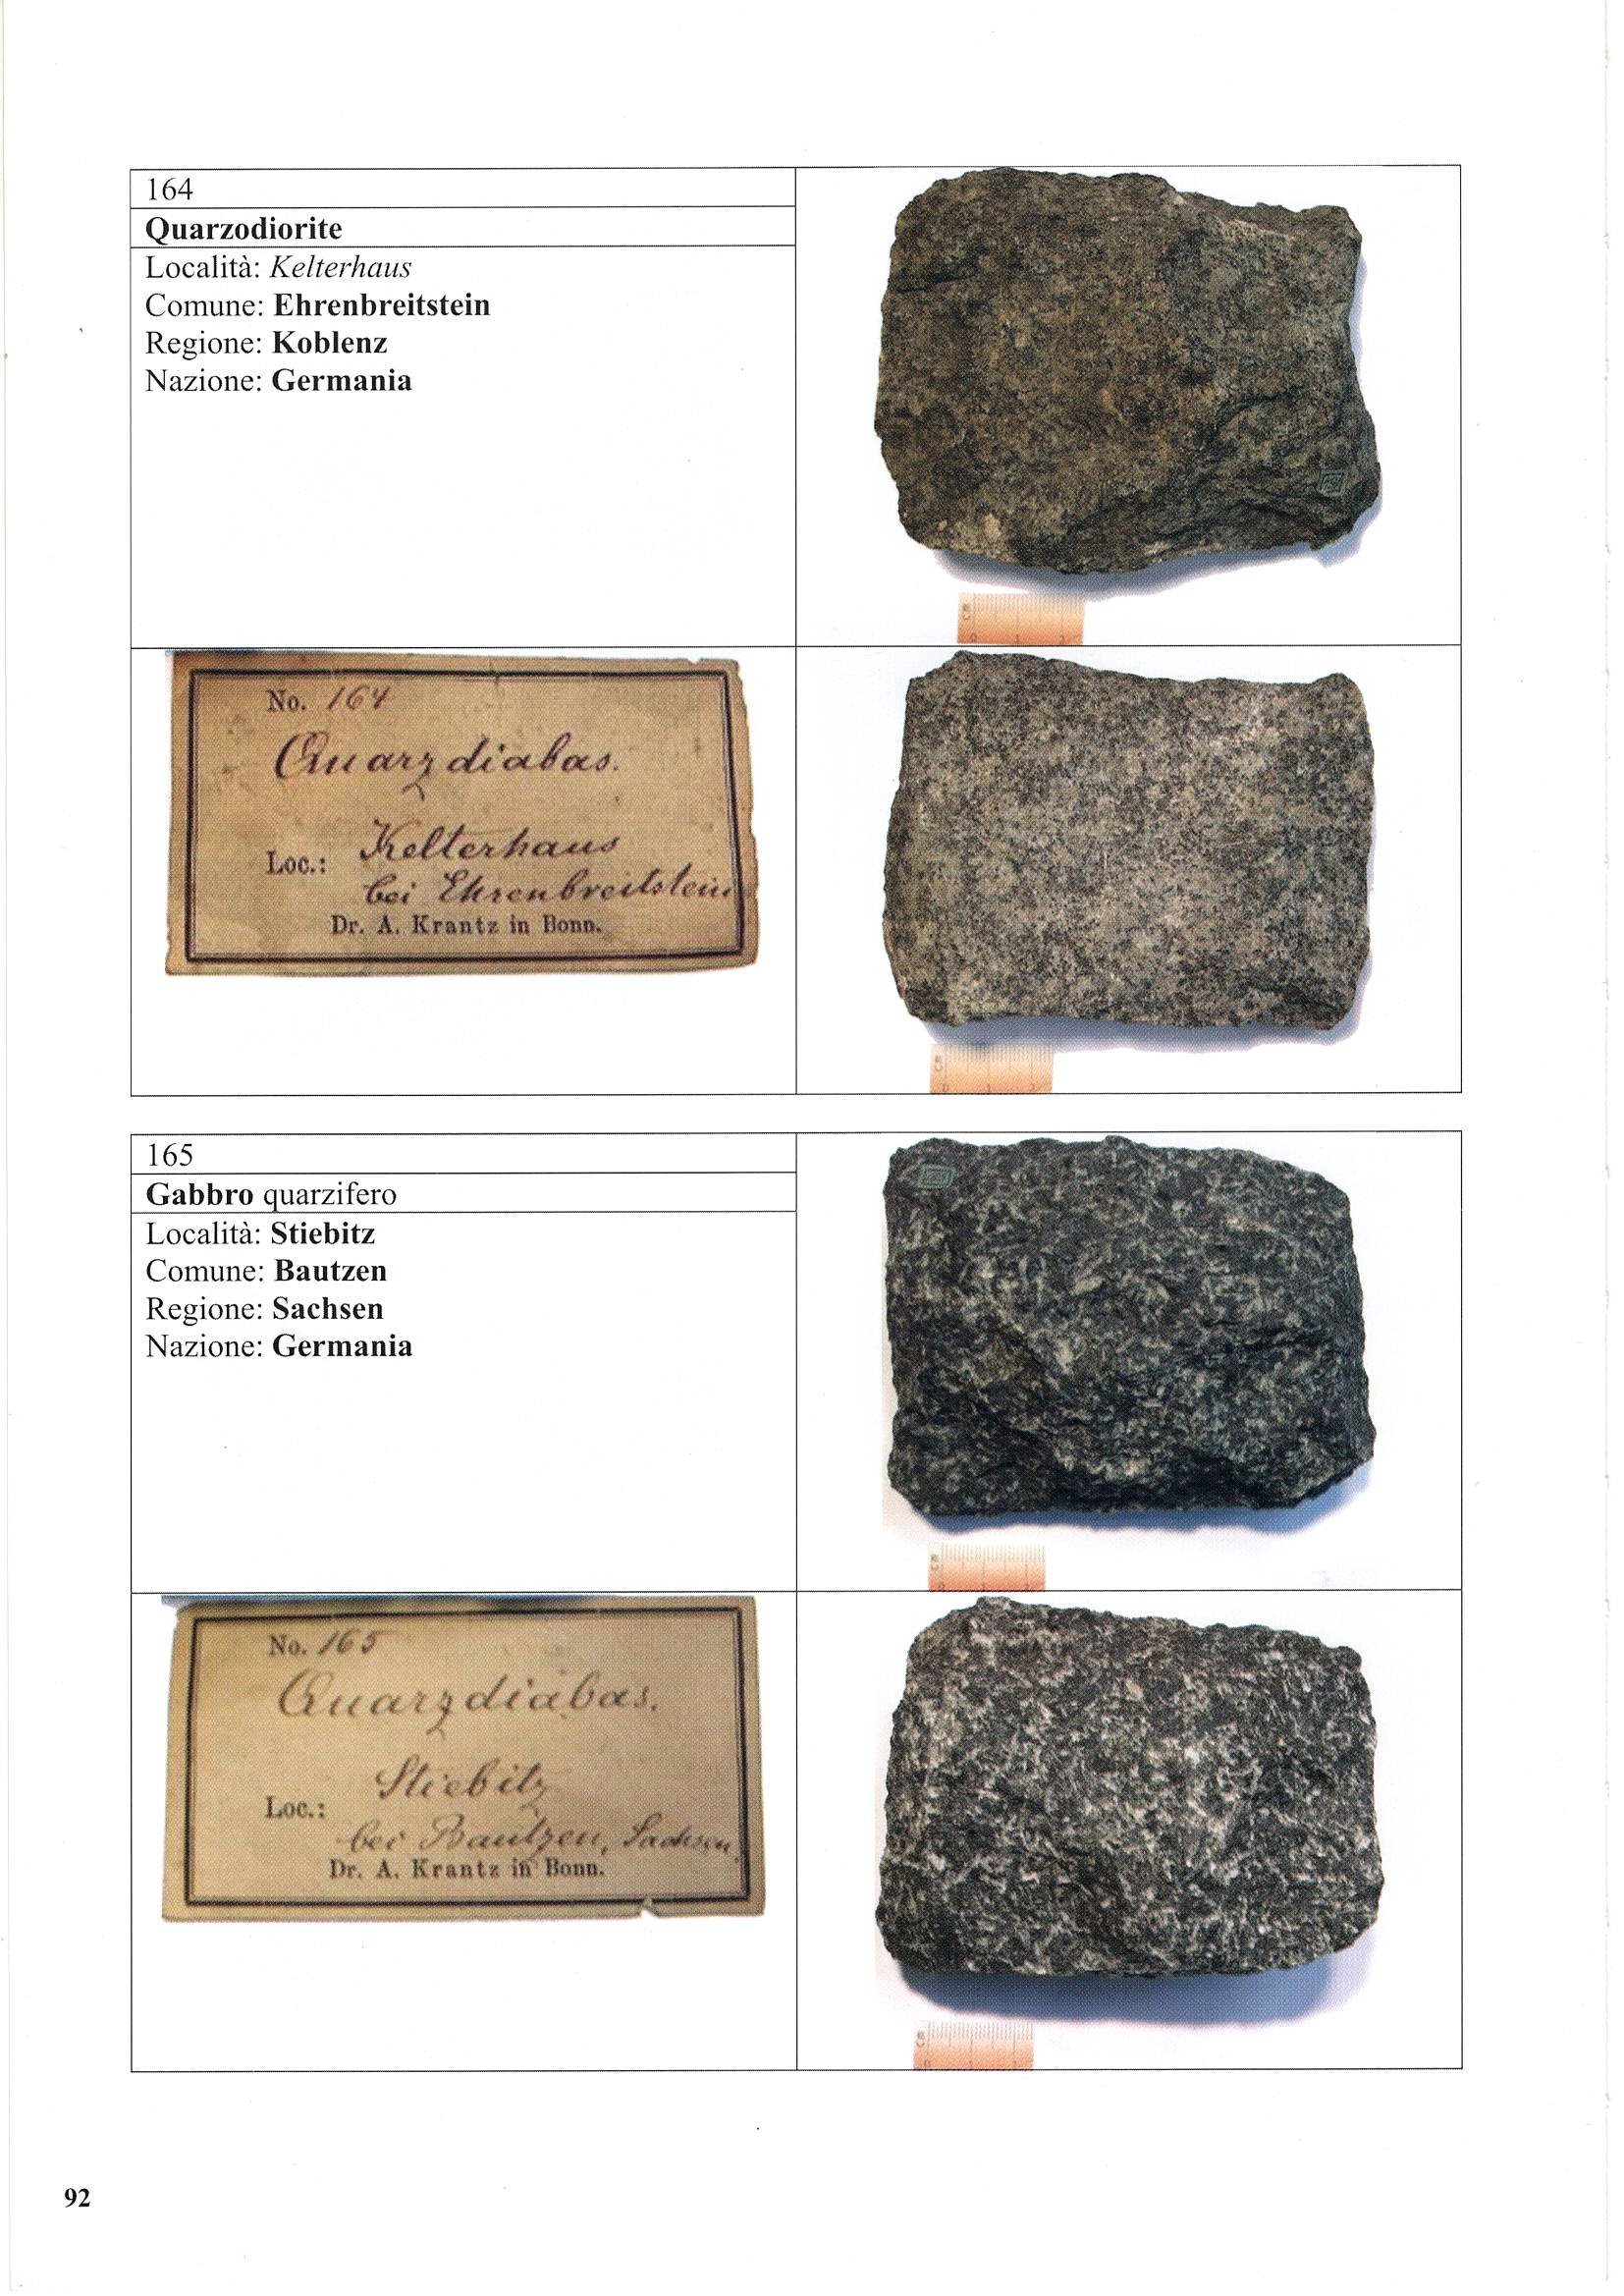 164
Quarzodiorite
Località: Kelterhaus
Comune: Ehrenbreitstein
Regione: Koblenz
Nazione: Germania
No. 164
Quarzdiabas.
Loc.: Kelterhaus
bei Ehrenbreitstein
Dr. A. Krantz in Bonn.
CM
0 1 2
CM
0 1 2
165
Gabbro quarzifero
Località: Stiebitz
Comune: Bautzen
Regione: Sachsen
Nazione: Germania
No. 165
Quarzdiabas.
Loc.: Stiebitz
bei Bautzen, Sachsen.
Dr. A. Krantz in Bonn.
CM
0 1 2
CM
0 1 2
92